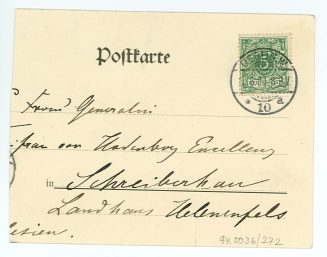 Postkarte
5
Frau Generalin
frau von Hodenberg Excellenz
in Schreiberhau
Landhaus Helenenfels
lesien.
* 10 a
94.5036/272